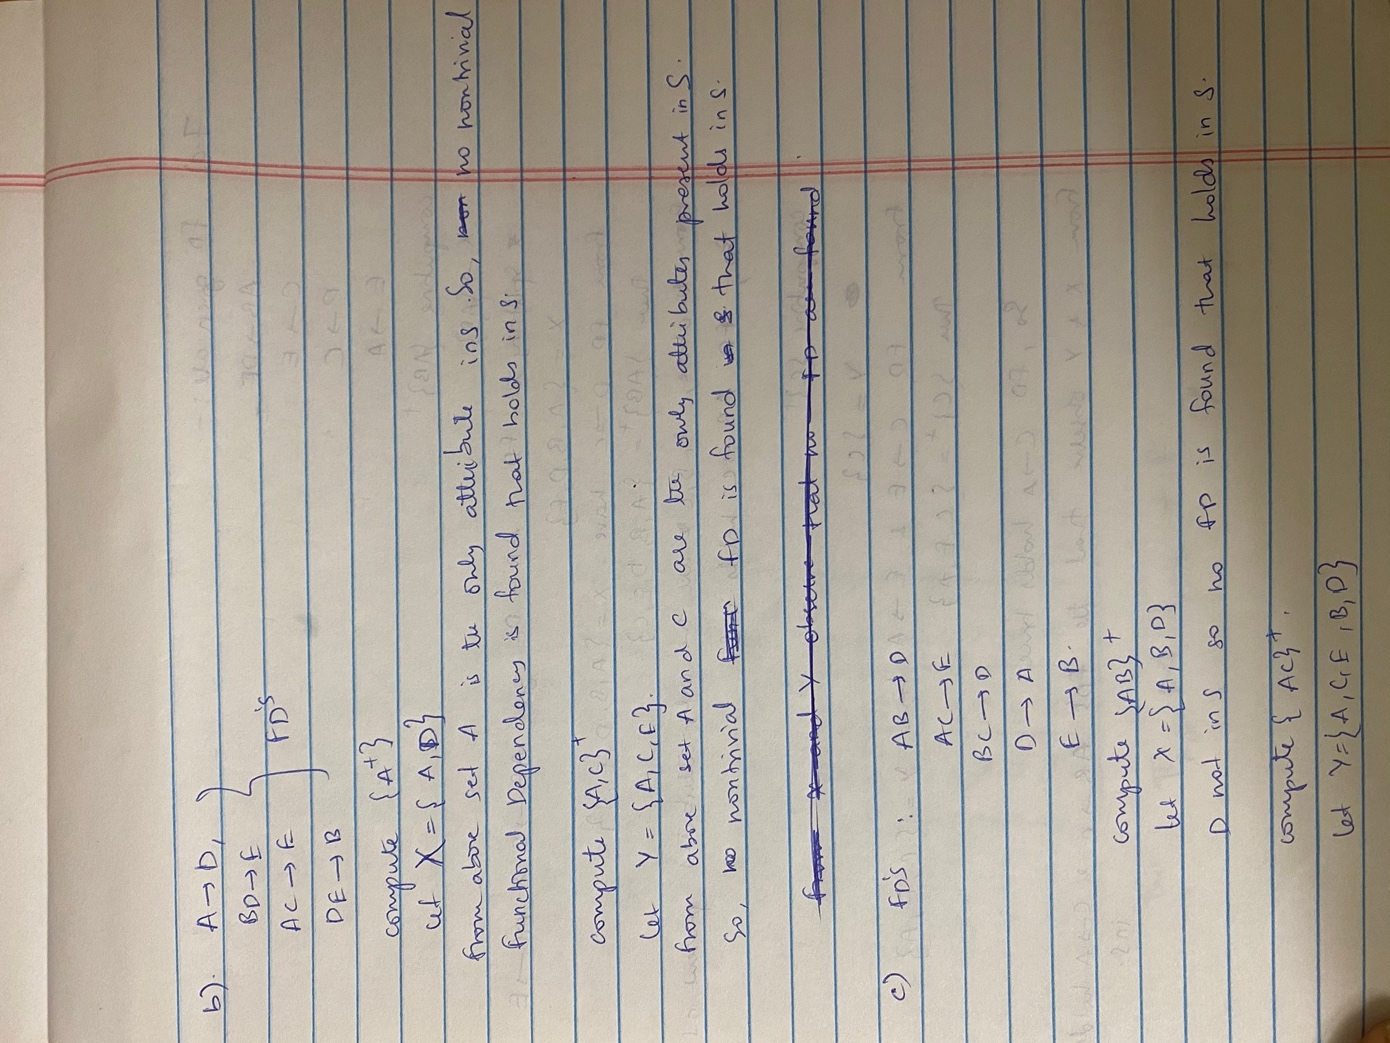 b). A→D,
BD→E
AC→E FD's
DE→B
compute {A⁺}
let X = { A, D}
from above set A is the only attribute in S. So, non no nontrivial
functional Dependency is found that holds in S.
compute {A,C}⁺
let Y = {A,C,E}.
from above set A and C are the only attributes present in S.
So, no nontrivial FD is found that holds in S.
from X and Y observe that no FD are found
c) FD's :- AB→D
AC→E
BC→D
D→A
E→B.
compute {AB}⁺
let X = { A, B, D}
D not in S so no FD is found that holds in S.
compute { AC}⁺.
let Y={A,C,E,B,D}